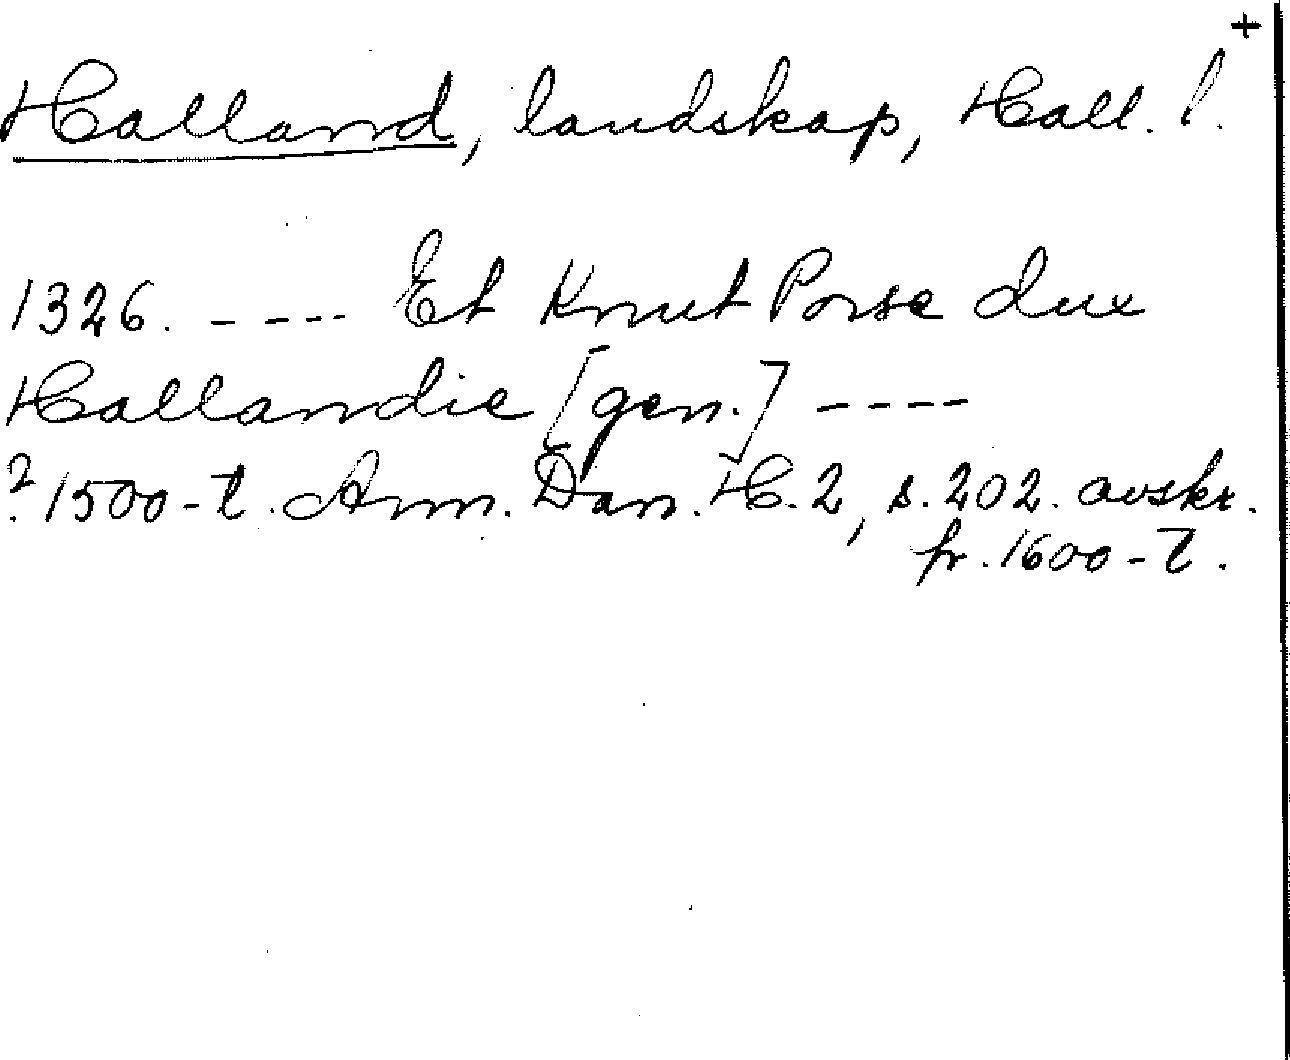 +
Halland, landskap, Hall. l.
1326. ---- Et Knut Porse dux
Hallandie [gen.] ----
? 1500-t. Ann. Dan. H. 2, s. 202. avskr.
fr. 1600-t.